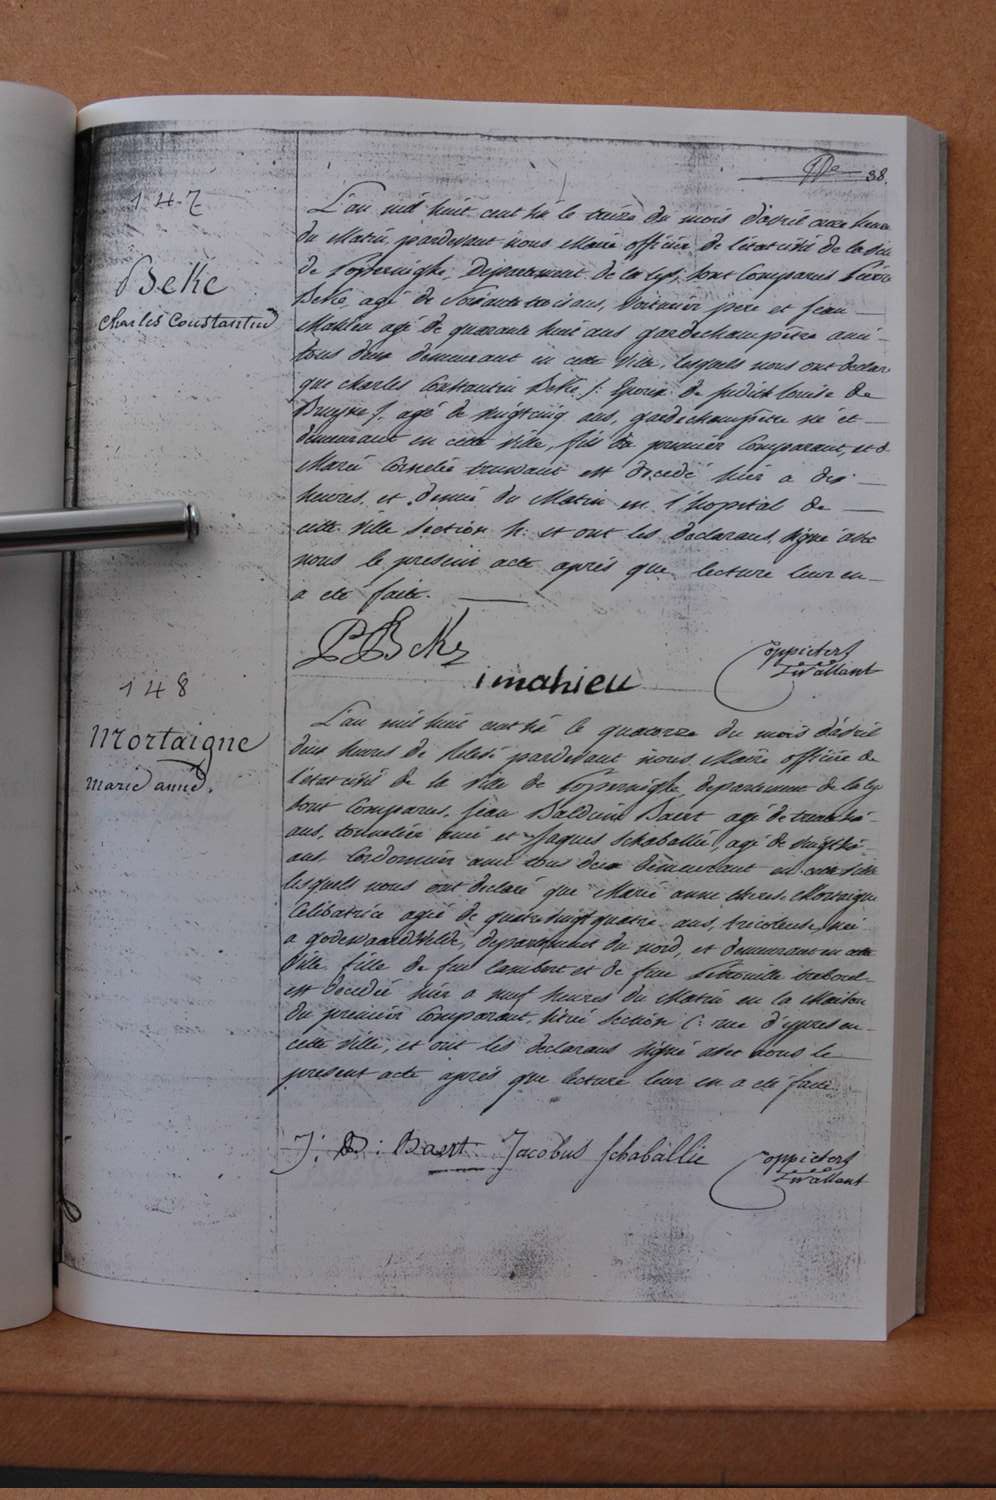 38.
147
Beke
Charles Constantin
L'an mil huit cent dix le treize du mois d'avril onze heures
du Matin, pardevant nous Maire officier de l'état civil de la ville
de Poperinghe, Département de la Lys, sont Comparus Pierre
Beke agé de Soixante trois ans, Voiturier père et Jean
Mahieu agé de quarante huit ans gardechampêtre ami
tous deux demeurant en cette Ville, lesquels nous ont declaré
que Charles Constantin Beke /: Epoux de Judith Louise de
Bruyne :/ agé de vingtcinq ans, gardechampêtre né et
demeurant en cette Ville, fils du premier Comparant, et de
Marie Cornelie est decedé hier a dix
heures et demie du Matin en l'hopital de
cette ville Section h: et ont les declarans signé avec
nous le present acte après que lecture leur en
a été faite.
P Beke
i mahieu
Coppieters
Stevallant
148
Mortaigne
Marie anne
L'an mil huit cent dix le quatorze du mois d'avril
deux heures de pardevant nous Maire officier de
l'état civil de la Ville de Poperinghe, département de la Lys
sont Comparus, Jean Balduin Baert agé de trente
ans, tonnelier ami et Jaques Schaballie, agé de
ans, Cordonnier ami tous deux demeurant en cette Ville
lesquels nous ont declaré que Marie anne Mortaigne
Celibatrice agée de quatre vingt quatre ans, tricoteuse, née
a godewaardvelde, département du nord, et demeurant en cette
Ville, fille de feu Lambert et de feue
est decedée hier a neuf heures du Matin en la Maison
du premier Comparant, située Section C: rue d'ypres en
cette Ville, et ont les declarans signé avec nous le
present acte après que lecture leur en a été faite.
J: B: Baert Jacobus Schaballie
Coppieters
Stevallant